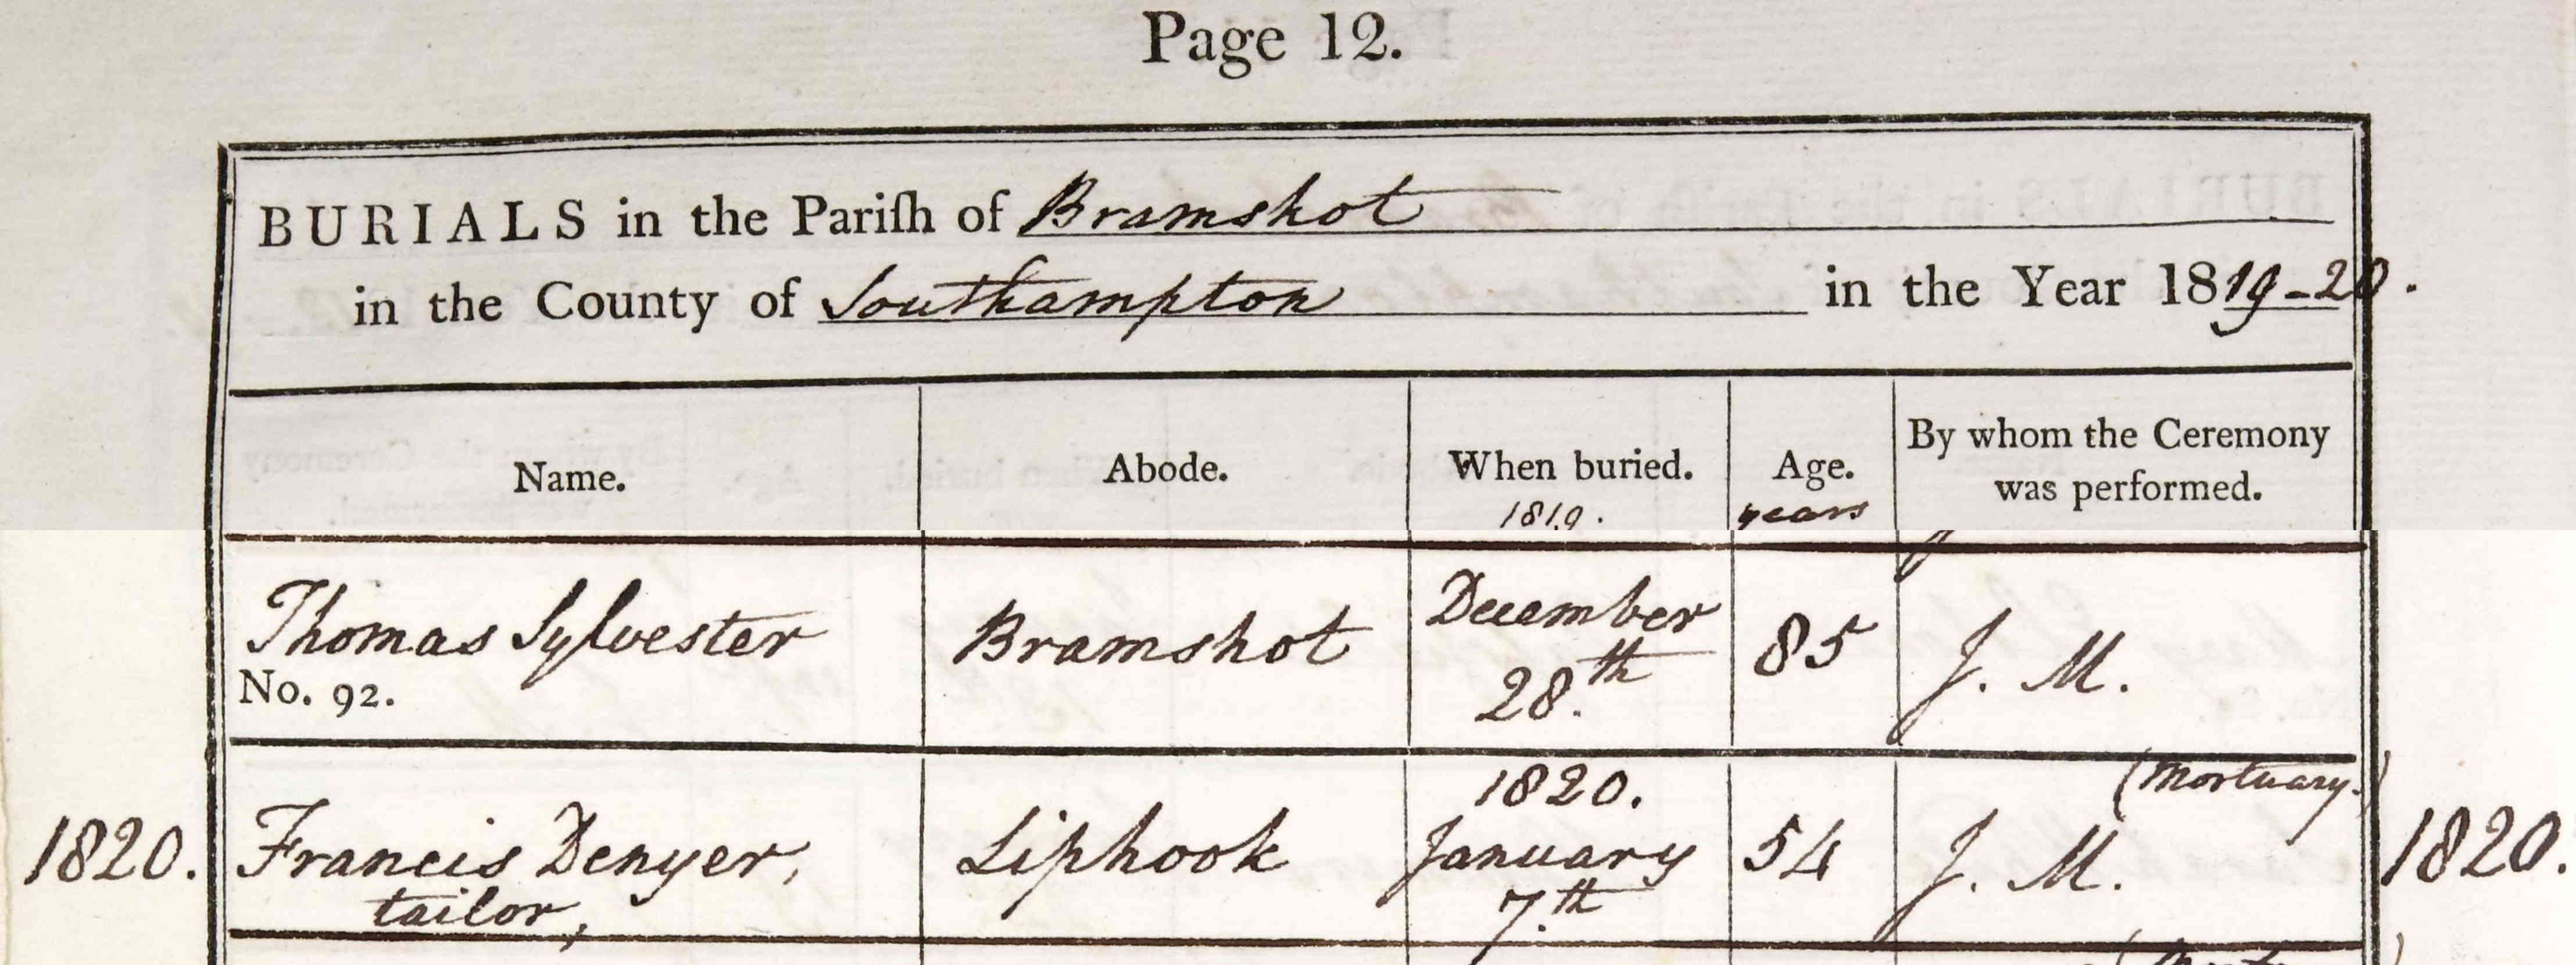 Page 12.
BURIALS in the Pariſh of Bramshot
in the County of Southampton in the Year 1819-20.
Name. Abode. When buried. Age. By whom the Ceremony was performed.
1819. years
Thomas Sylvester Bramshot December 28.th 85 J. M.
No. 92.
1820. (Mortuary.)
1820. Francis Denyer, Liphook January 54 J. M. 1820.
tailor, 7.th